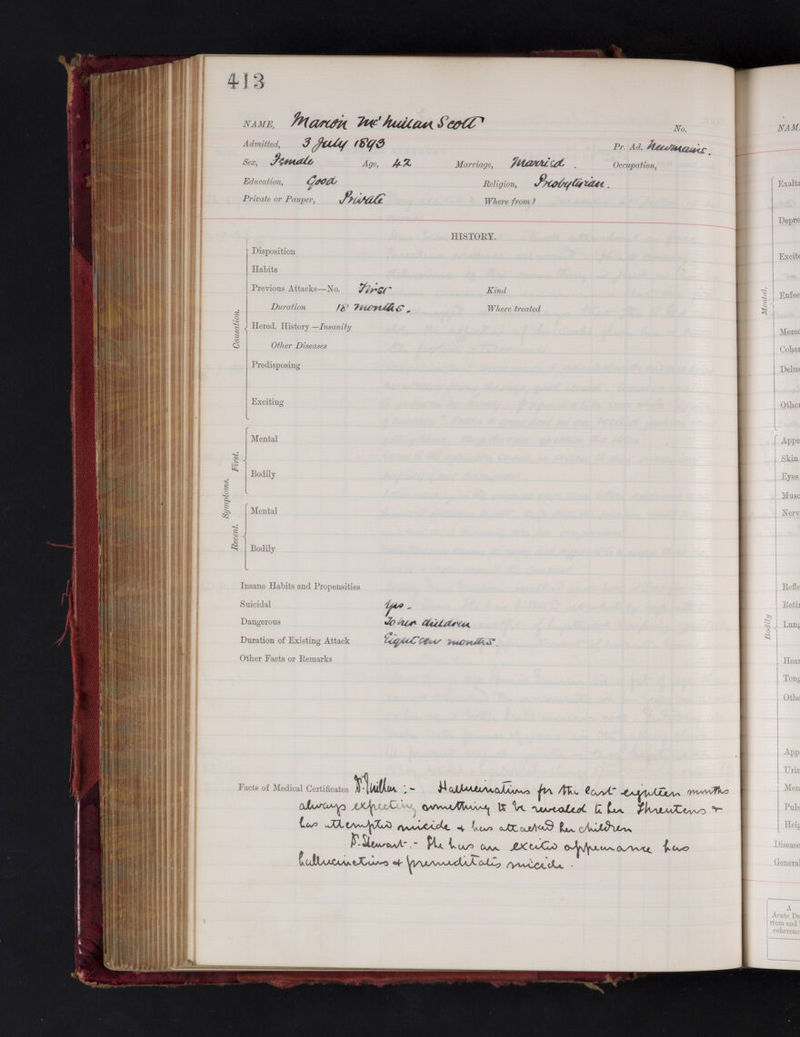 413
NAME, Marion McMillan Scott No.
Admitted, 3 July 1893 Pr. Ad.
Sex, Female Age, 42 Marriage, Married. Occupation,
Education, Good Religion, Presbyterian.
Private or Pauper, Private Where from?
HISTORY.
Disposition
Habits
Previous Attacks—No. First Kind
Duration 18 months. Where treated
Causation.
Hered. History—Insanity
Other Diseases
Predisposing
Exciting
Symptoms.
First.
Mental
Bodily
Recent.
Mental
Bodily
Insane Habits and Propensities
Suicidal Yes -
Dangerous To her children
Duration of Existing Attack Eighteen months.
Other Facts or Remarks
Facts of Medical Certificates Dr. Millar :- Hallucinations for the last eighteen months
always expecting something to be revealed to her Threatens &
has attempted suicide & has attacked her children
Dr. Stewart - She has an excited appearance has
hallucinations & premeditates suicide.
NAM
Mental.
Exalt
Depre
Excit
Enfee
Memo
Cohe
Delus
Other
Bodily
Appe
Skin
Eyes
Musc
Nerv
Refle
Reti
Lung
Hear
Tong
Othe
App
Urin
Men
Puls
Heig
Disease
General
A
Acute De
rium and
coherenc